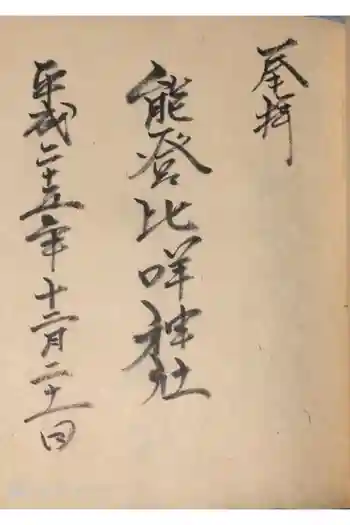 奉拝
能登比咩神社
平成二十五年十二月二十一日